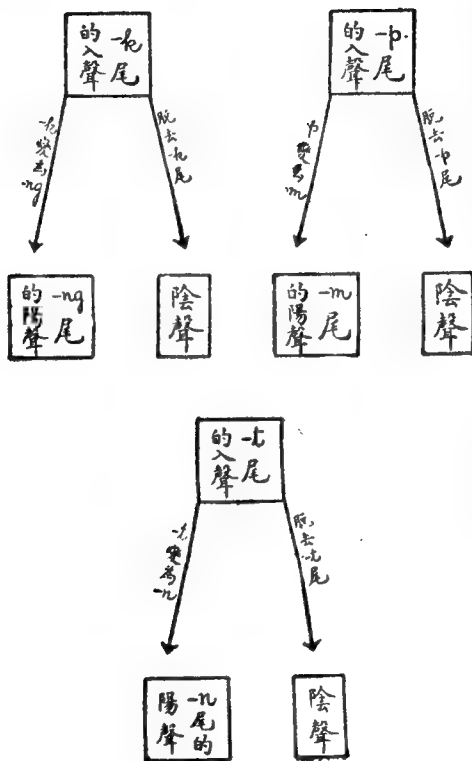 -k尾
的入聲
-k變為-ng
脫去-k尾
-ng尾
的陽聲
陰聲
-p.尾
的入聲
-p變為-m
脫去-p尾
-m尾
的陽聲
陰聲
-t尾
的入聲
-t變為-n
脫去-t尾
-n尾的
陽聲
陰聲